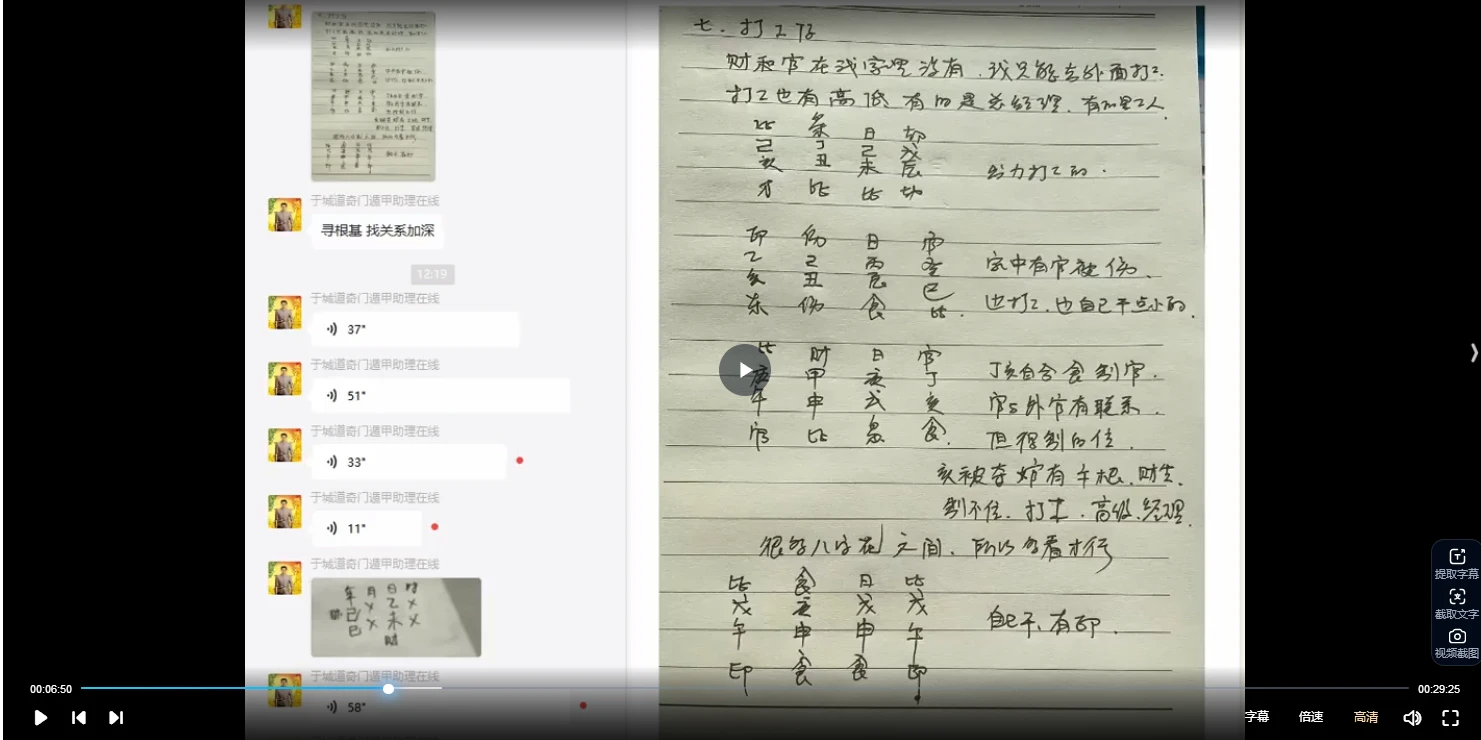 于城道奇门遁甲助理在线
寻根基 找关系加深
12:19
于城道奇门遁甲助理在线
37"
于城道奇门遁甲助理在线
51"
于城道奇门遁甲助理在线
33"
于城道奇门遁甲助理在线
11"
于城道奇门遁甲助理在线
年 月 日 时
己 X 乙 X
巳 X 未 X
财
于城道奇门遁甲助理在线
58"
七、打工仔
财和官在我家里没有，我只能去外面打工.
打工也有高低 有的是总经理，有的是工人.
比 枭 日 劫
己 丁 己 戊
亥 丑 未 辰
才 比 比 劫
给力打工的.
印 伤 日 官
乙 己 丙 壬
亥 丑 辰 巳
伤 食 比.
家中有官被伤.
也打工,也自己干点小的.
比 财 日 官
庚 甲 辛 丁
午 申 亥
官 比 食.
丁亥自合 食制官.
官与外官有联系.
但得制的住.
亥被夺 有午根.财生.
制不住. 打工. 高级.经理.
很多八字在 之间, 所以多看才行
比 食 日 比
戊 庚 戊 戊
午 申 申 午
印 食 食 印
自己干、有印.
提取字幕
截取文字
视频截图
00:06:50
00:29:25
字幕
倍速
高清